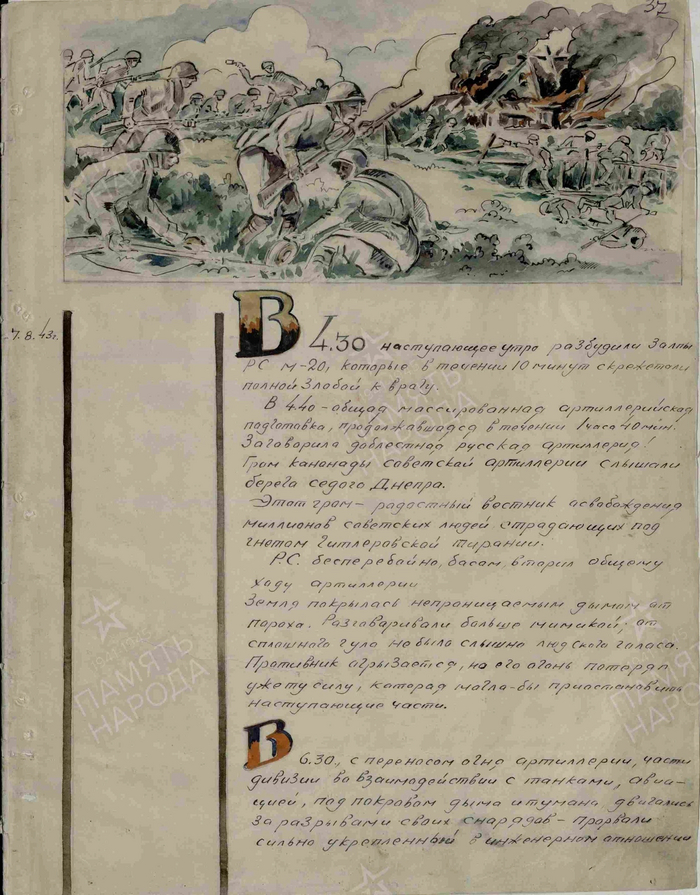 37
7.8.43г.
В 4.30 наступающее утро разбудили залпы
РС М-20, которые в течении 10 минут скрежетали
полной злобой к врагу.
В 4.40 – общая массированная артиллерийская
подготовка, продолжавшаяся в течении 1 часа 40 мин.
Заговорила доблестная русская артиллерия!
Гром канонады советской артиллерии слышали
берега седого Днепра.
Этот гром – радостный вестник асвобаждения
миллионов советских людей страдающих под
гнетом Гитлеровской тирании.
Р.С. бесперебойно, басом, вторил общему
ходу артиллерии
Земля покрылась непроницаемым дымом от
пороха. Разговаривали больше мимикой, от
сплошного гула не было слышно людского голоса.
Противник огрызается, но его огонь потерял
уже ту силу, которая могла-бы приостановить
наступающие части.
В 6.30., с переносом огня артиллерии, части
дивизии во взаимодействии с танками, авиа-
цией, под покровом дыма и тумана двигаясь
за разрывами своих снарядов – прорвали
сильно укрепленный в инженерном отношении
ПАМЯТЬ
НАРОДА